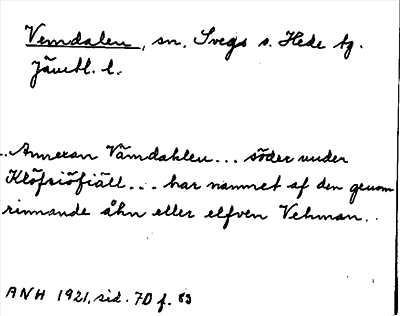 Vemdalen, sn, Svegs o. Hede tg.
Jämtl. l.
..Annexan Vämdahlen... söder under
Klöfsiöfiäll... har namnet af den genom
rinnande åhn eller elfven Vehman..
ANH 1921, sid. 70 f. 83